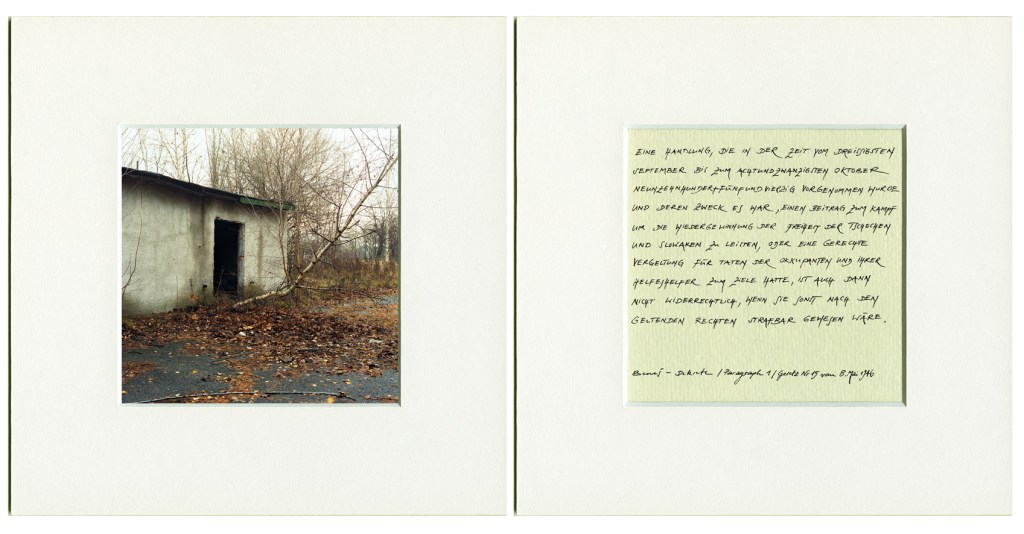 EINE HANDLUNG, DIE IN DER ZEIT VOM DREISSIGSTEN
SEPTEMBER BIS ZUM ACHTUNDZWANZIGSTEN OKTOBER
NEUNZEHNHUNDERTFÜNFUNDVIERZIG VORGENOMMEN WURDE
UND DEREN ZWECK ES WAR, EINEN BEITRAG ZUM KAMPF
UM DIE WIEDERGEWINNUNG DER FREIHEIT DER TSCHECHEN
UND SLOWAKEN ZU LEISTEN, ODER EINE GERECHTE
VERGELTUNG FÜR TATEN DER OKKUPANTEN UND IHRER
HELFESHELFER ZUM ZIELE HATTE, IST AUCH DANN
NICHT WIDERRECHTLICH, WENN SIE SONST NACH DEN
GELTENDEN RECHTEN STRAFBAR GEWESEN WÄRE.
Beneš - Dekrete / Paragraph 1 / Gesetz Nr 115 vom 8. Mai 1946